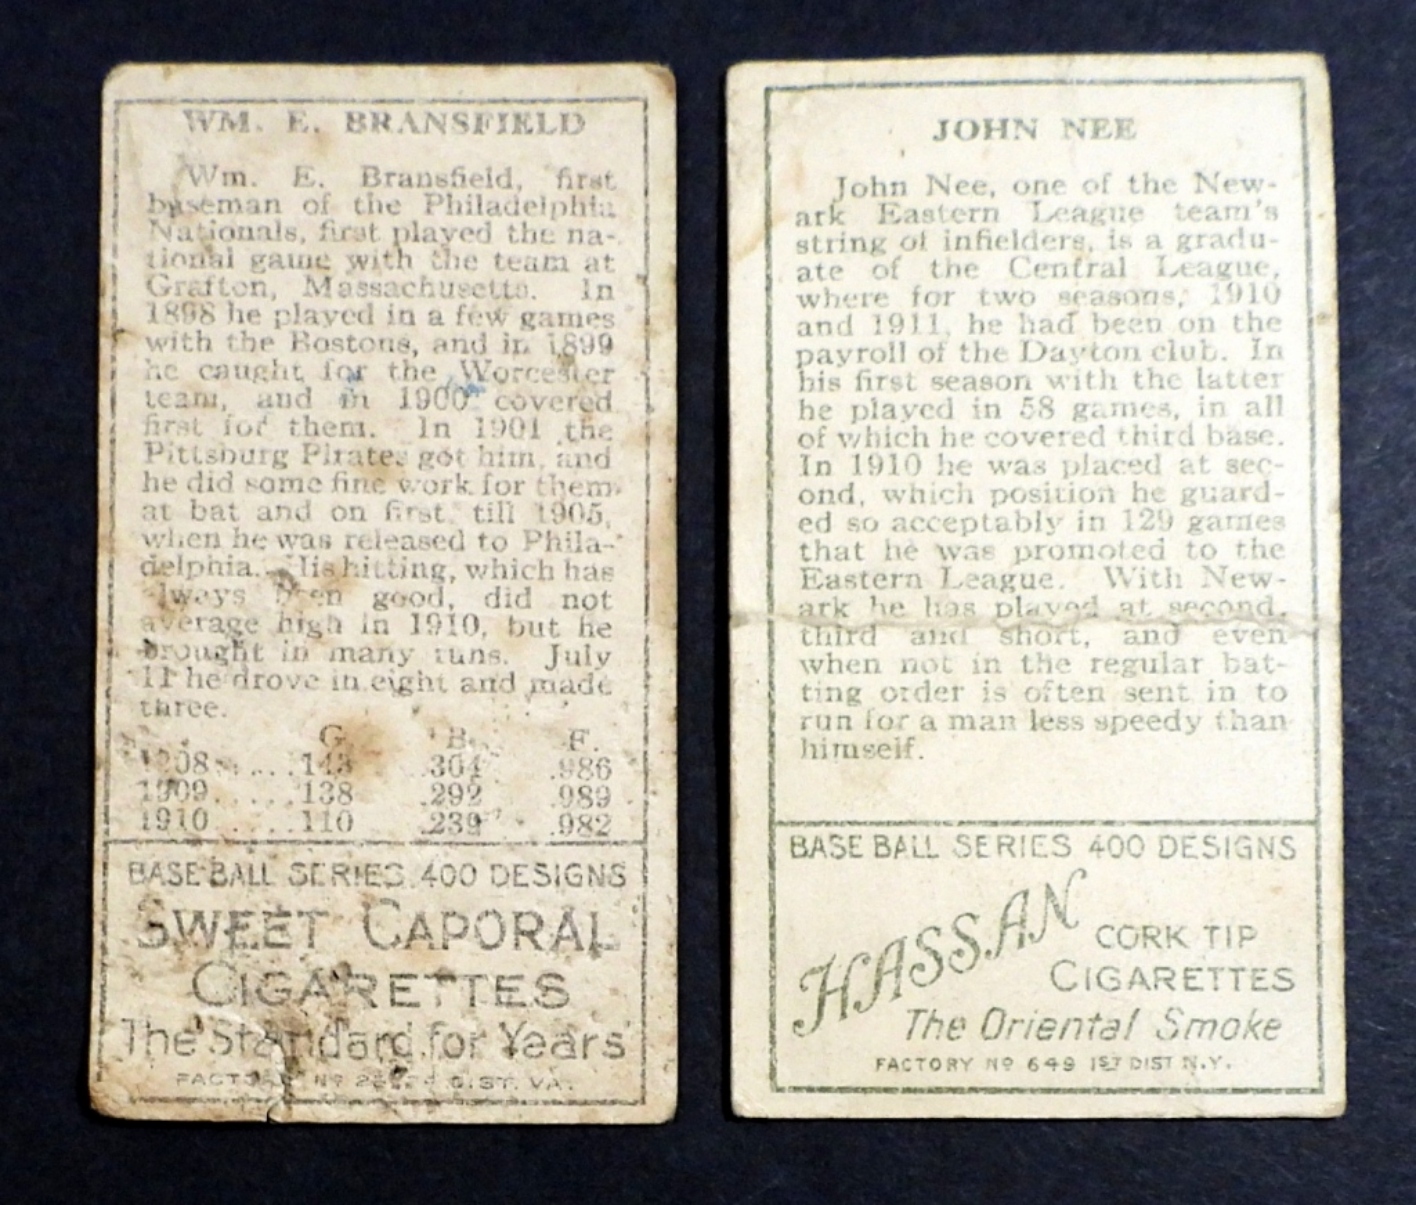 WM. E. BRANSFIELD
Wm. E. Bransfield, first
baseman of the Philadelphia
Nationals, first played the na-
tional game with the team at
Grafton, Massachusetts. In
1898 he played in a few games
with the Bostons, and in 1899
he caught for the Worcester
team, and in 1900 covered
first for them. In 1901 the
Pittsburg Pirates got him, and
he did some fine work for them
at bat and on first till 1905,
when he was released to Phila-
delphia. His hitting, which has
always been good, did not
average high in 1910, but he
brought in many runs. July
11 he drove in eight and made
three.
G. B. F.
1908.....143 .304 .986
1909.....138 .292 .989
1910.....110 .239 .982
BASE BALL SERIES 400 DESIGNS
SWEET CAPORAL
CIGARETTES
The Standard for Years
FACTORY Nº DIST. VA.
JOHN NEE
John Nee, one of the New-
ark Eastern League team's
string of infielders, is a gradu-
ate of the Central League,
where for two seasons, 1910
and 1911, he had been on the
payroll of the Dayton club. In
his first season with the latter
he played in 58 games, in all
of which he covered third base.
In 1910 he was placed at sec-
ond, which position he guard-
ed so acceptably in 129 games
that he was promoted to the
Eastern League. With New-
ark he has played at second,
third and short, and even
when not in the regular bat-
ting order is often sent in to
run for a man less speedy than
himself.
BASE BALL SERIES 400 DESIGNS
HASSAN CORK TIP
CIGARETTES
The Oriental Smoke
FACTORY Nº 649 1ST DIST N.Y.